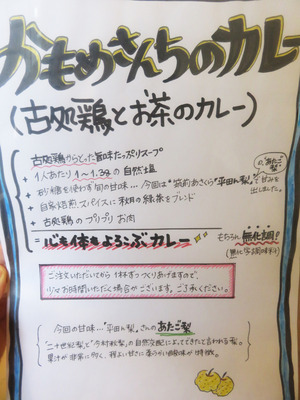 かもめさんちのカレー
(古処鶏とお茶のカレー)
古処鶏からとった旨味たっぷりスープ
+ 1人あたり1〜1.3gの自然塩
+ 砂糖を使わず旬の甘味…今回は"筑前あさくら"平田ん梨"の"あたご梨"で甘みを出しました。
+ 自家焙煎スパイスに秋月の緑茶をブレンド
+ 古処鶏のプリプリお肉
= 心も体もよろこぶカレー
もちろん無化調!
(無化学調味料)
ご注文いただいてから1杯ずつつくりあげますので、
少々お時間いただく場合がございます。ご了承ください。
今回の甘味…"平田ん梨"さんのあたご梨
"二十世紀梨"と"今村秋梨"の自然交配によってできたと言われる梨。
果汁が非常に多く、程よい甘さに柔らかい酸味が特徴。